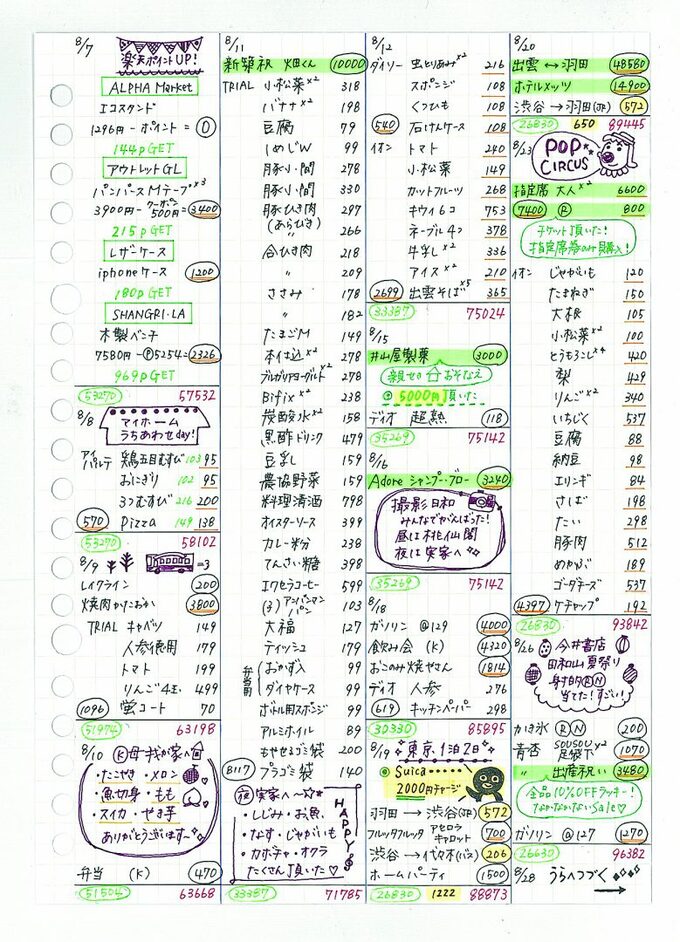 8/7
楽天ポイントUP!
ALPHA Market
エコスタンド
1296円-ポイント=0
144p GET
アウトレットGL
パンパースMテープ×3
3900円-クーポン500円=3400
215p GET
レザーケース
iphoneケース 1200
180p GET
SHANGRI-LA
木製ベンチ
7580円-P5254=2326
969p GET
53270 57532
8/8
マイホーム
うちあわせday!
鶏五目むすび 103 95
おにぎり 102 95
3つむすび 216 200
570 Pizza 149 138
53270 58102
8/9
=3
レイクライン 200
焼肉かたおか 3800
TRIAL キャベツ 149
人参徳用 179
トマト 199
りんご4玉 499
1096 蛍コート 70
51974 63198
8/10 K母 我が家へ
・たこやき・メロン
・魚切身・もも
・スイカ・やき芋
ありがとうございます〜
弁当 (K) 470
51504 63668
8/11
新築祝 畑くん 10000
TRIAL 小松菜×2 318
バナナ×2 198
豆腐 79
しめじW 99
豚小間 278
豚小間 330
豚ひき肉 297
(あらびき) 〃 266
合びき肉 218
〃 209
ささみ 178
〃 182
たまごM 149
本仕込×2 278
ブルガリアヨーグルト×2 238
Bifix×2 238
炭酸水×2 158
黒酢ドリンク 479
豆乳 159
農協野菜 159
料理清酒 798
オイスターソース 399
カレー粉 238
てんさい糖 398
エクセラコーヒー 599
(3)アンパンマンパン 103
大福 127
ティッシュ 179
弁当用
おかず入 99
ダイヤケース 99
ボトル用スポンジ 99
アルミホイル 89
もやせるゴミ袋 200
8117 プラゴミ袋 140
夜 実家へ〜☆
・しじみ・お魚
・なす・じゃがいも
・カボチャ・オクラ
たくさん頂いた♡
HAPPY
33387 71785
8/12
ダイソー 虫とりあみ×2 216
スポンジ 108
くつひも 108
540 石けんケース 108
イオン トマト 240
小松菜 149
カットフルーツ 268
キウイ6コ 753
ネーブル4コ 378
牛乳×2 336
アイス×2 210
2699 出雲そば×5 365
33387 75024
8/15
井山屋製菓 3000
親せき おそなえ
5000円頂いた
ディオ 超熟 118
35269 75142
8/16
Adore シャンプー・ブロー 3240
撮影日和
みんなでがんばった!
昼は桃仙閣
夜は実家へ
35269 75142
8/18
ガソリン @129 4000
飲み会 (K) 4320
おこのみ焼やさん 1814
ディオ 人参 276
619 キッチンペーパー 298
30330 85895
8/19 東京1泊2日
Suica
2000円チャージ
羽田→渋谷(JR) 572
フルックフルック アセロラキャロット 700
渋谷→代々木(バス) 206
ホームパーティ 1500
26830 1222 88873
8/20
出雲↔羽田 48580
ホテルメッツ 14900
渋谷→羽田(JR) 572
26830 650 89445
8/23
POP CIRCUS
指定席 大人×2 6600
7400 R 800
チケット頂いた!
指定席券のみ購入!
イオン じゃがいも 120
たまねぎ 150
大根 105
小松菜×2 100
とうもろこし×4 420
梨 429
りんご×2 340
いちじく 537
豆腐 88
納豆 98
エリンギ 84
さば 198
たい 298
豚肉 512
めかぶ 189
ゴーダチーズ 537
4397 ケチャップ 192
26830 93842
8/26 今井書店
田和山夏祭り
射的RN
当てた!すごい!
かき氷 RN 200
青杏 SOUSOU足袋下×2 1070
〃 出産祝い 3480
全品10%OFFラッキー!
なかなかないSale♡
ガソリン @127 1270
26630 96382
8/28 うらへつづく
→